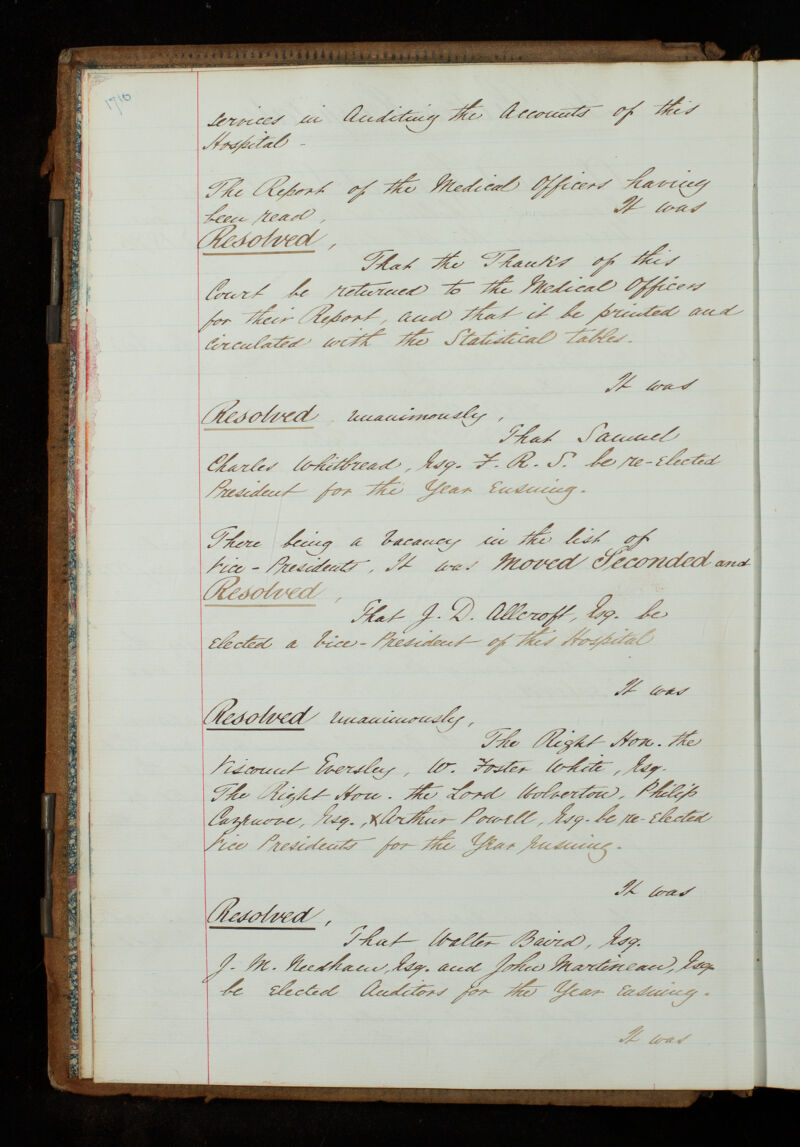 1710
services in Auditing the Accounts of this
Hospital -
The Report of the Medical Officers having
been read, It was
Resolved,
That the Thanks of this
Court be returned to the Medical Officers
for their Report, and that it be printed and
circulated with the Statistical tables.
It was
Resolved unanimously,
That Samuel
Charles Whitbread, Esq. F. R. S. be re-elected
President for the Year Ensuing.
There being a vacancy in the list of
Vice-Presidents, It was Moved Seconded and
Resolved,
That J. D. Allcroft, Esq. be
elected a Vice-President of this Hospital
It was
Resolved unanimously,
The Right Hon. the
Viscount Eversley, W. Foster White, Esq.
The Right Hon. the Lord Wolverton, Philip
Cazenove, Esq., & Arthur Powell, Esq. be re-elected
Vice Presidents for the Year Ensuing.
It was
Resolved,
That Walter Baird, Esq.
J. M. Needham, Esq. and John Martineau, Esq.
be elected Auditors for the Year Ensuing.
It was